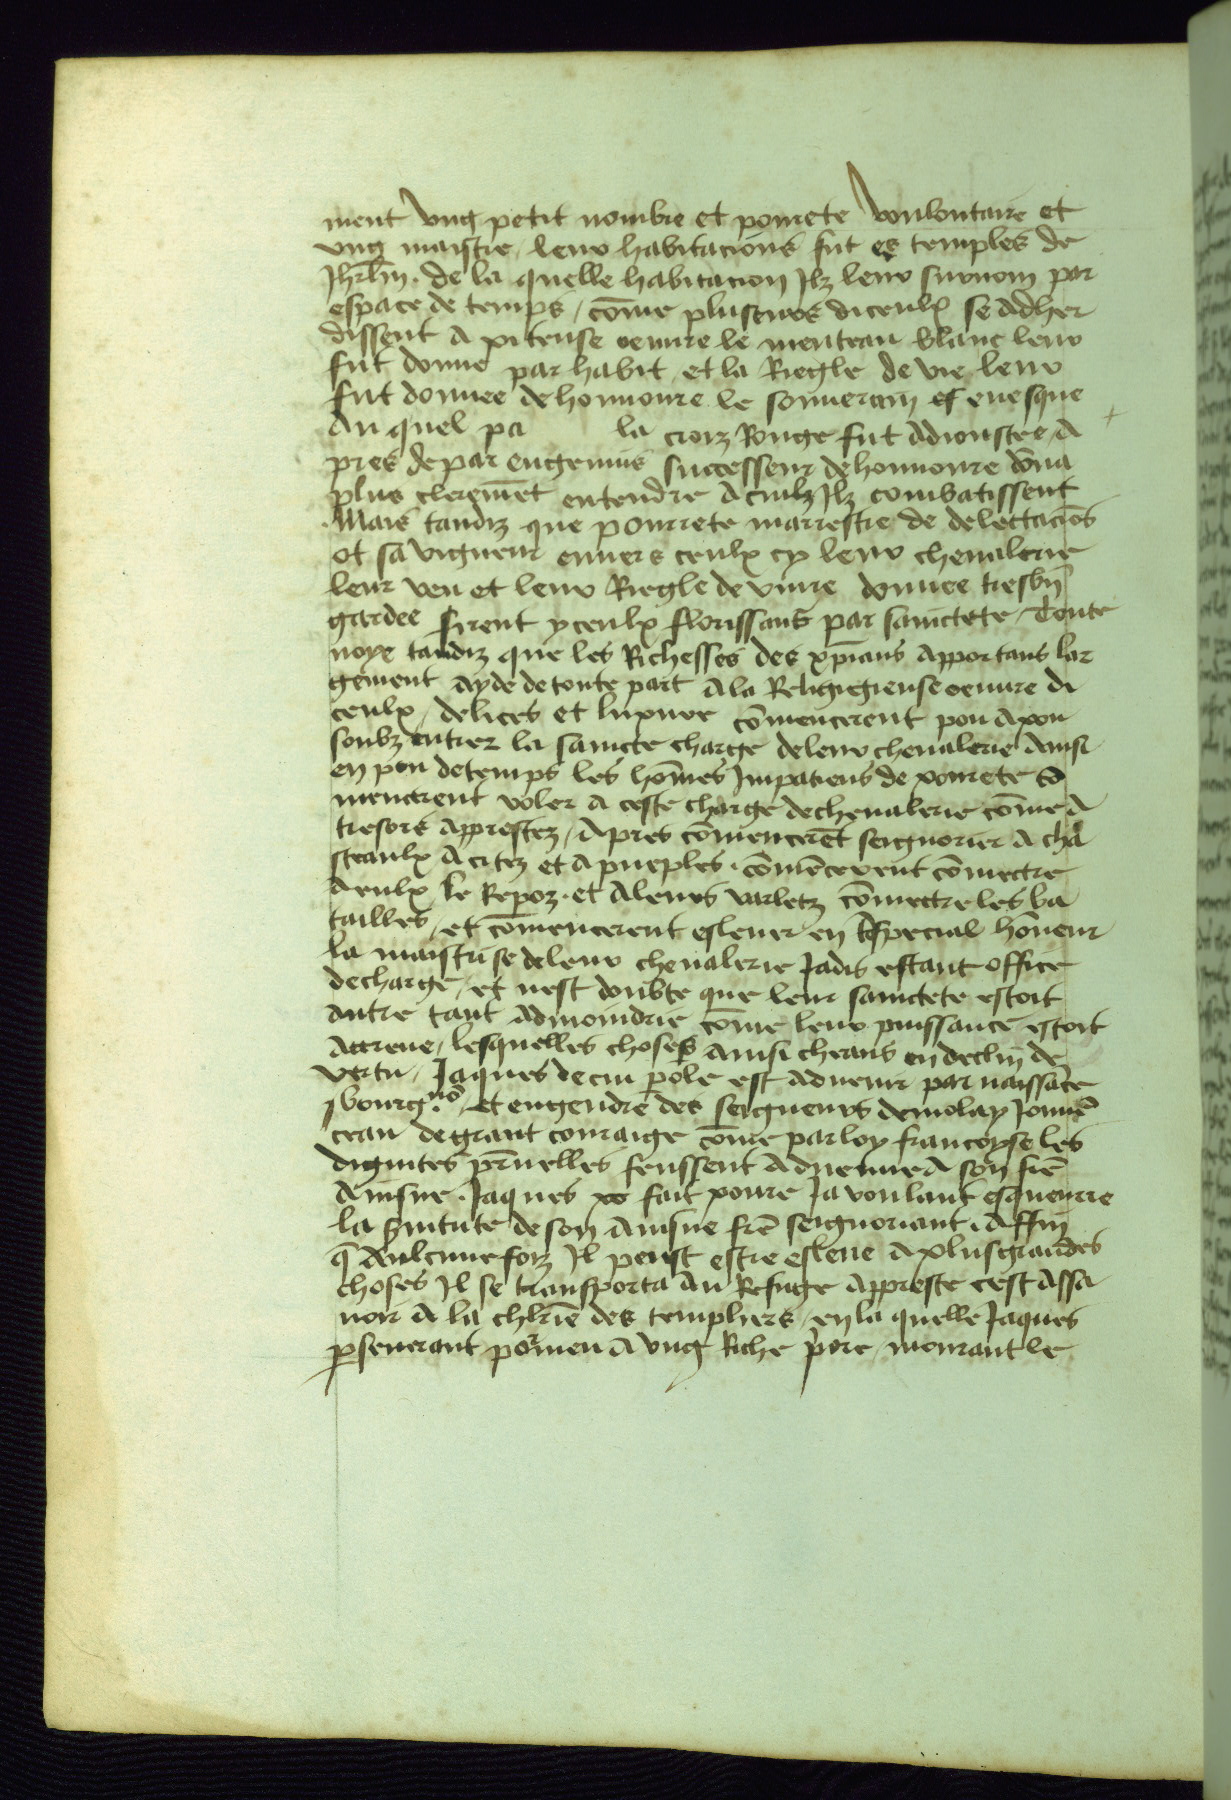 ment ung petit nombre et pourete voulontaire et
ung maistre, leur habitacions fut es temples de
Jhrlm̄. de la quelle habitacion Ilz leur surnom par
espace de temps, com̄e pluseurs diceulx se adher
dissent a piteuse oeuure le menteau blanc leur
fut donne par habit, et la Riegle de vie leur
fut donnee de honnoure le souuerain euesque
Au quel pa la croiz Rouge fut adioustee, A
pres de par eugenius successeur de honnoure dōna
plus cleremēt entendre a cui Ilz combatissent
. Mais tandiz que pourrete marrestre de delectaciōs
ot sa vigueur enuers ceulx cy leur cheualerie
leur veu et leur Riegle de viure donnee tresbn̄
gardee firent yceulx florissans par sainctete, Toute
noye tandiz que les Richesses des xp̄ians apportans lar
gement ayde de toute part a la Religigieuse oeuure di
ceulx, delices et luxure com̄encerent pou a pou
soubz entrer la saincte charge de leur cheualerie Ainsi
en pou de temps les hom̄es Impatiens de pourete cō
mencerent voler a ceste charge de cheualerie com̄e a
tresors apprestez, Apres com̄encerēt seignorier a cha
steaulx a citez et a pueples. com̄ēcerent com̄ectre
a eulx le Repoz. et a leurs varletz com̄ectre les ba
tailles, et com̄encerent esleuer en especial hōneur
la maistrise de leur cheualerie Jadis estant office
de charge, et nest doubte que leur sainctete estoit
autre tant admoindrie com̄e leur puissance estoit
accreue, lesquelles choses ainsi cheans en declin de
vertu, Jaques de cui parole est aduenir par naissāce
bourg.no, Et engendre des seigneurs de molay Jouuē
ceau de grant couraige com̄e par loy francoyse les
dignites pr̄nelles feussent aduenue a son fr̄e
Ainsne. Jaques fait poure Ja voulant esqueurre
la seruitute de son ainsne fr̄e seignoriant, Affin
q̄ Aulcune foiz Il peust estre esleue a plus grandes
choses Il se transporta au Refuge appreste cest assa
uoir a la chlr̄ie des templiers, en la quelle Jaques
perseuerant pormeu a ung Riche priore, mourant le